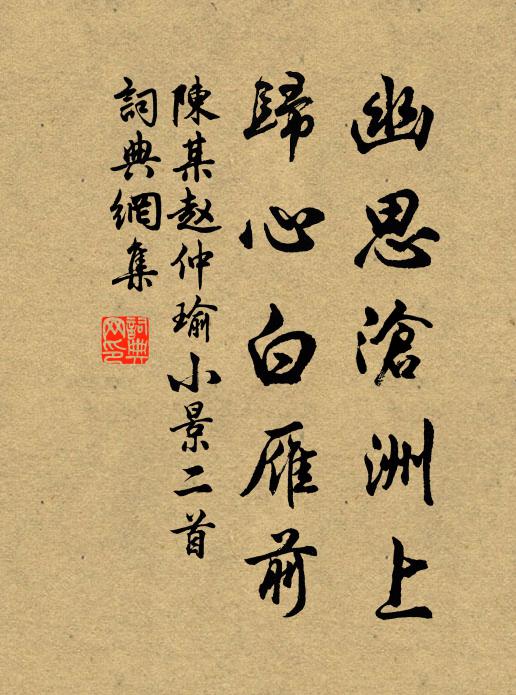 幽思滄洲上
歸心白雁前
陳某赵仲瑜小景二首
詞典網集
詞典網印